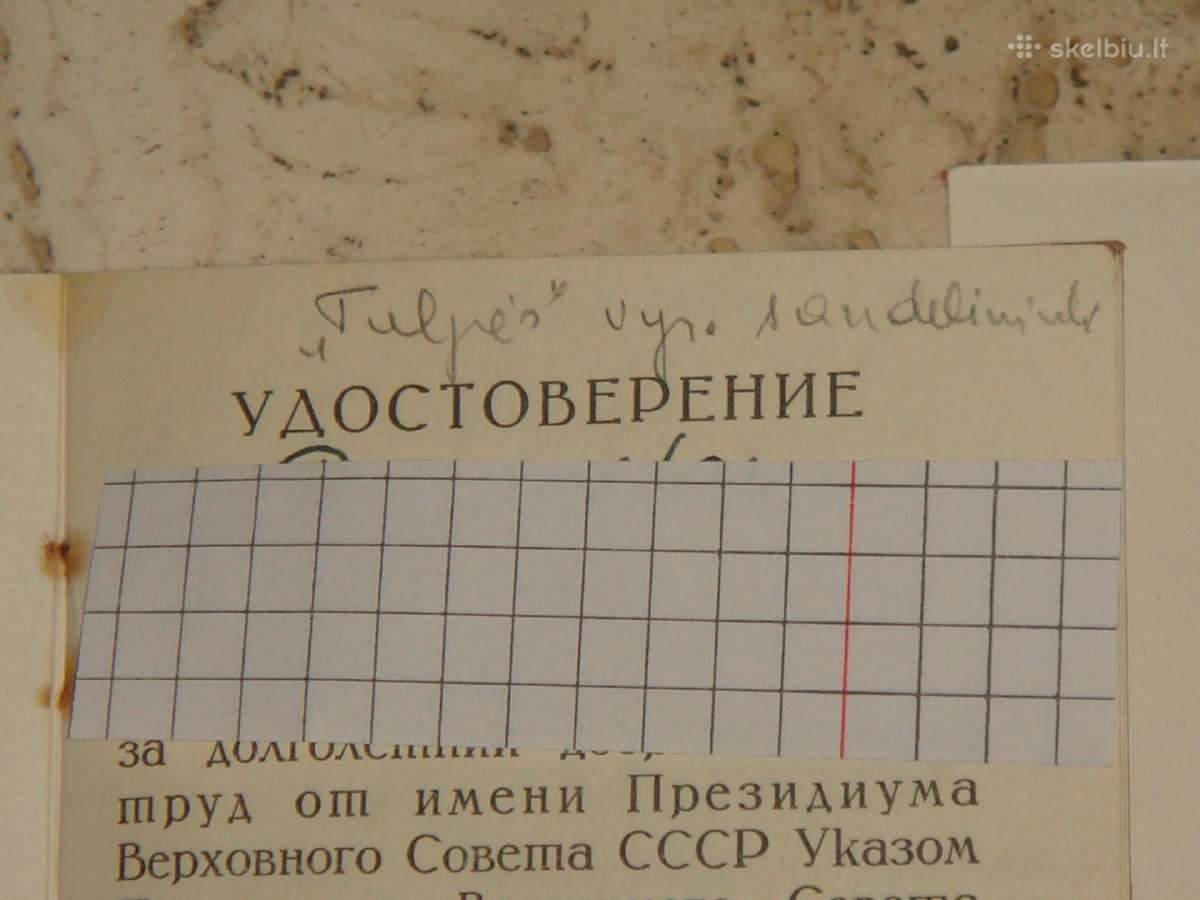 skelbiu.lt
„Tulpės“ vyr. sandelinink
УДОСТОВЕРЕНИЕ
за долголетний
труд от имени Президиума
Верховного Совета СССР Указом
Совета